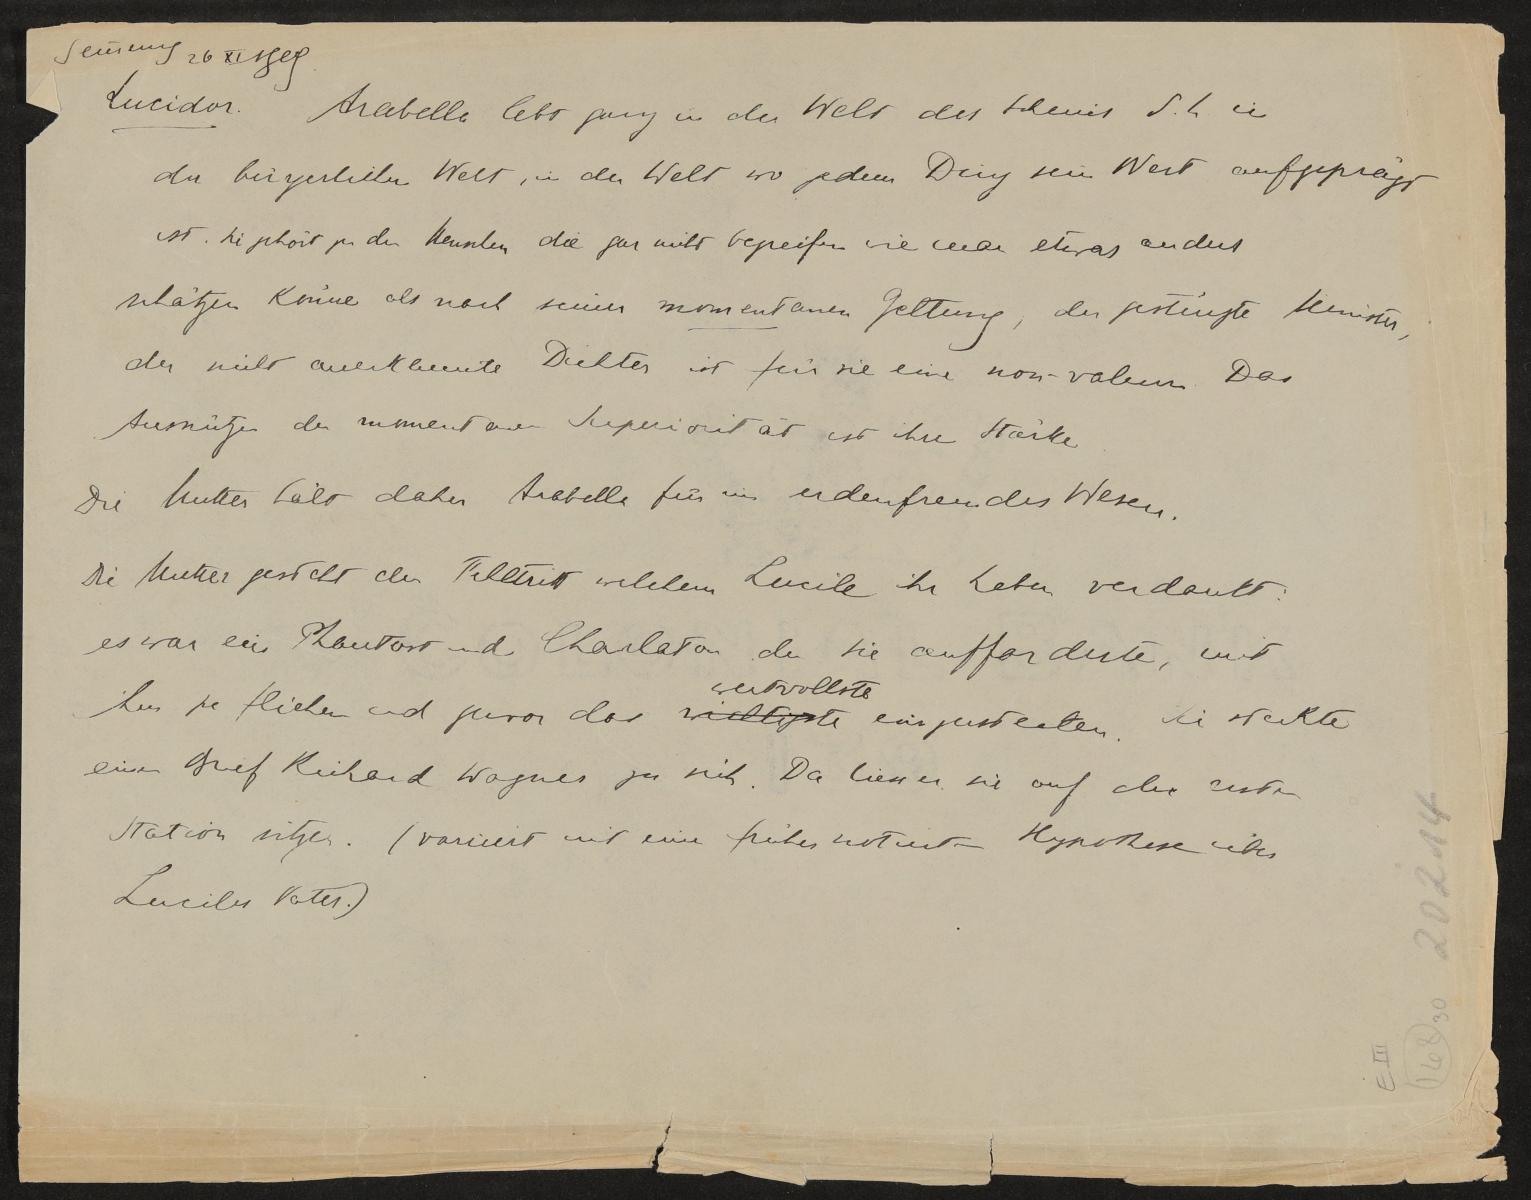 Semmering 26 XI 1909
Lucidor. Arabella lebt ganz in der Welt des Scheins d. h. in
der bürgerlichen Welt, in der Welt wo jedem Ding sein Wert aufgeprägt
ist. Sie gehört zu den Menschen die gar nicht begreifen wie man etwas anders
schätzen könne als nach seiner momentanen Geltung, der gestürzte Minister,
der nicht anerkannte Dichter ist für sie eine non-valeur. Das
Ausnützen der momentanen Superiorität ist ihre Stärke
Die Mutter hält daher Arabella für ein erdenfremdes Wesen.
Die Mutter gesteht den Fehltritt welchem Lucile ihr Leben verdankt:
es war ein Phantast und Charlatan der sie aufforderte, mit
wertvollste
ihm zu fliehen und zuvor das wichtigste einzustecken. Sie steckte
einen Brief Richard Wagners zu sich. Da liess er sie auf der ersten
Station sitzen. (variiert mit einer früher notierten Hypothese über
Luciles Vater.)
E III
168 30
20214